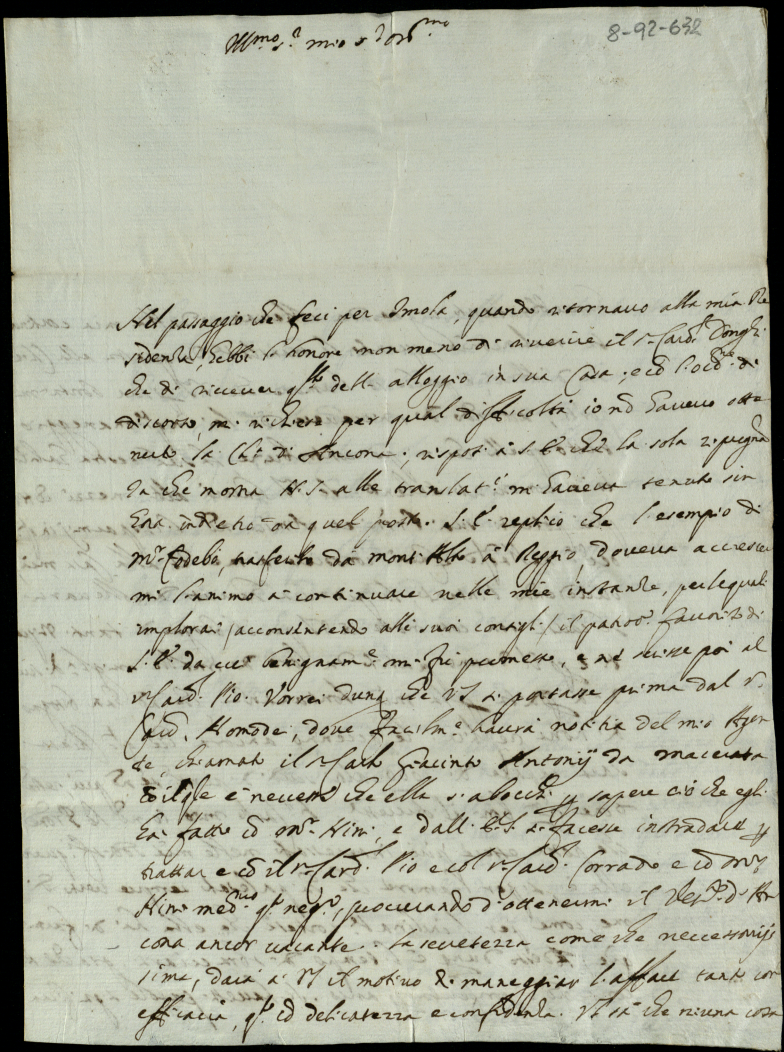 8-92-632
Ill.mo s.r mio s.r oss.mo
Nel passaggio che feci per Imola, quando ritornavo alla mia Re
sidenza, hebbi l'honore non meno di riverire il s.r Card.l Donghi
che di ricever q.llo dell'alloggio in sua Casa; e cõ l'occ.ne di
discorso, mi richiese per qual difficoltà io nõ havevo otte
nuto la Ch.a di Ancona; risposi à S. E. che la sola repugnã
za che mostra N. S. alle translat.i mi haveva tenuto sin
hora indietro da quel posto. S. E. replicò che l'esempio di
Mr. Codebò, trasferito da Mont'Alto à Reggio, doveva accrescer
mi l'animo à continuare nelle mie instanze, per le quali
implorai /acconsentendo alli suoi consigli/ il patroc.o favorito di
S. E. da cui benignam.e mi fù promesso, e ne scrisse poi al
s.r Card. Pio. Vorrei dunq che VS si portasse prima dal s.r
Card. Homodei, dove facilm.e haverà notitia del mio Agen
te, chiamato il s.r Giacinto Antonij da Macerata
cõ il q.le è necess.o che ella s'abocchi p sapere ciò che egli
hà fatto cõ Mr. Nini, e dall' E. S. si facesse instradare p
trattar e cõ il s.r Card. Pio e col s.r Card. Corrado e cõ Mr.
Nini med.mo q.to neg.o, procurando d'ottenermi il Vesc.o d'An
cona ancor vacante. La secretezza come che necessariis
sima, darà à VS il motivo di maneggiar l'affare tanto con
efficacia, q.to cõ delicatezza e confidenza. VS sà che niuna cosa